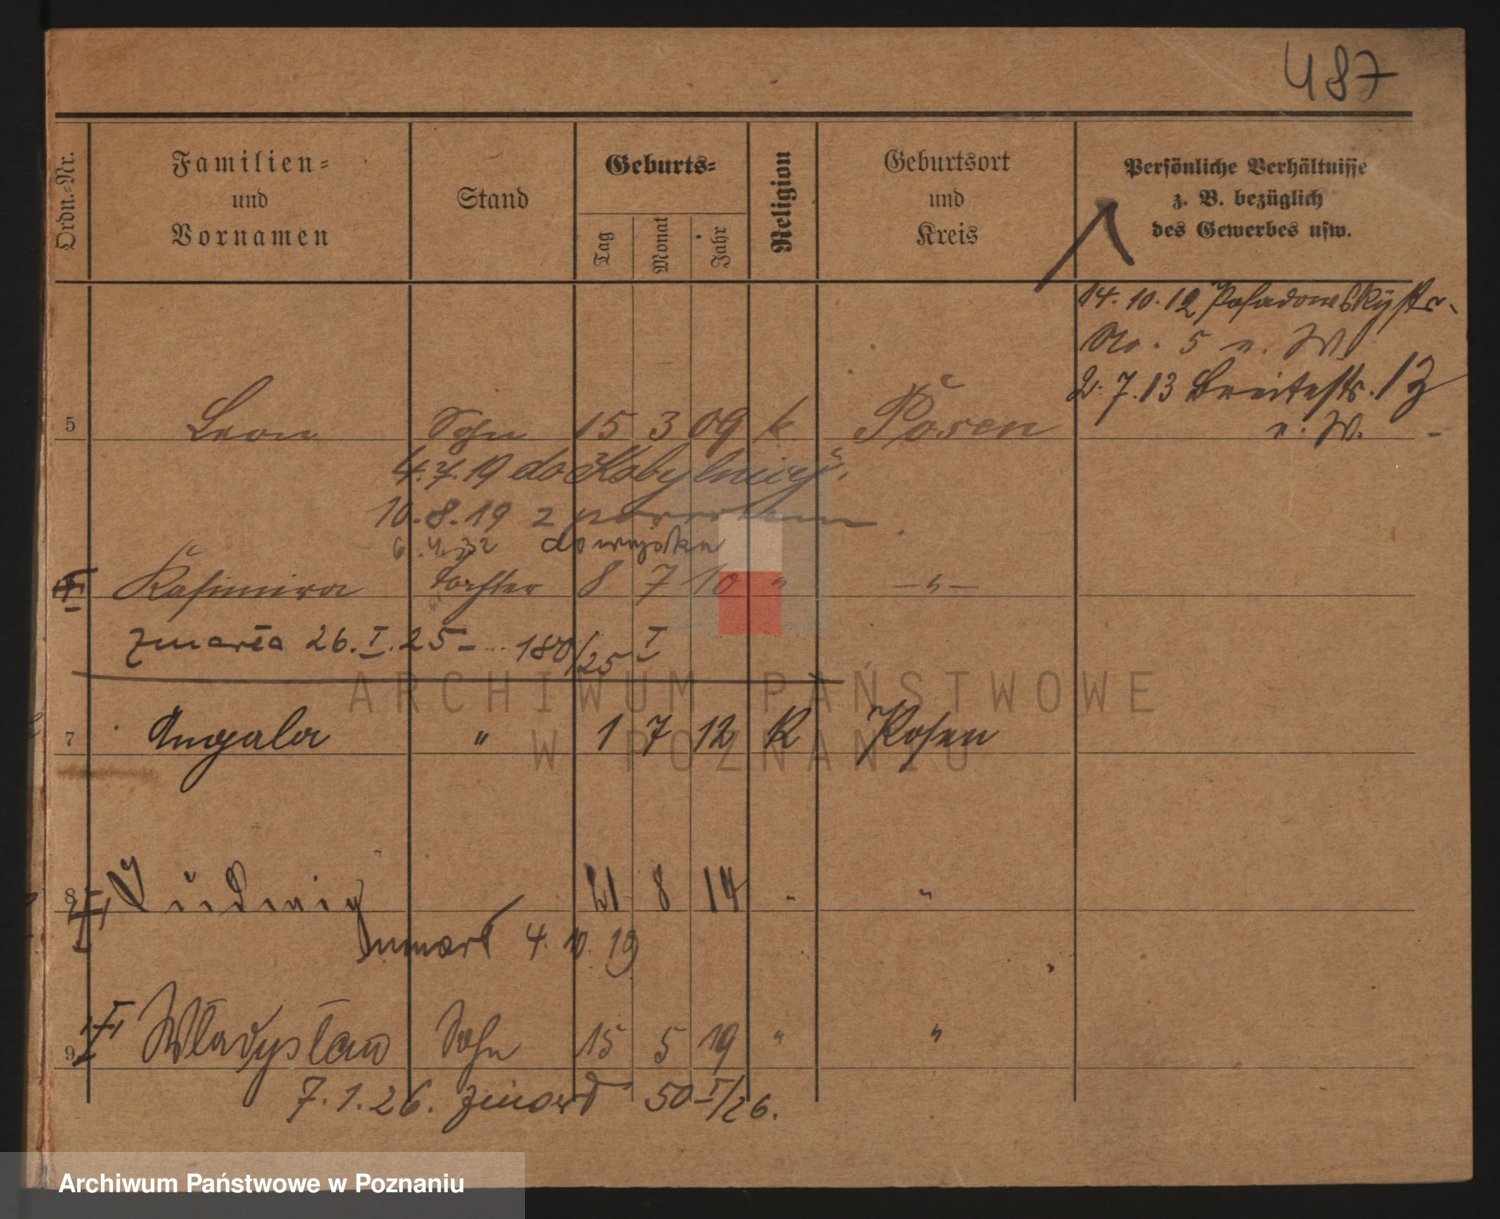 487
Ordn.-Nr.
Familien-
und
Vornamen
Stand
Geburts-
Tag
Monat
Jahr
Religion
Geburtsort
und
Kreis
Persönliche Verhältnisse
z. B. bezüglich
des Gewerbes usw.
14. 10. 12 Posadowskystr.
No. 5 v. W.
2. 7. 13 Breitestr. 13
v. W.
5 Leon Sohn 15 3 09 k. Posen
4. 7. 19 do Kobylnicy
10. 8. 19 z powrotem
6. 4. 32 do wojska
Kasimira Tochter 8 7 10 " – " –
zmarła 26. I. 25 – 180/25 I
7 Angala " 1 7 12 K Posen
8 Ludwig 21 8 14 " "
zmarł 4. 10. 19
9 Władysław Sohn 15 5 19 " "
7. 1. 26. zmarł 50 I/26.
ARCHIWUM PAŃSTWOWE
W POZNANIU
Archiwum Państwowe w Poznaniu